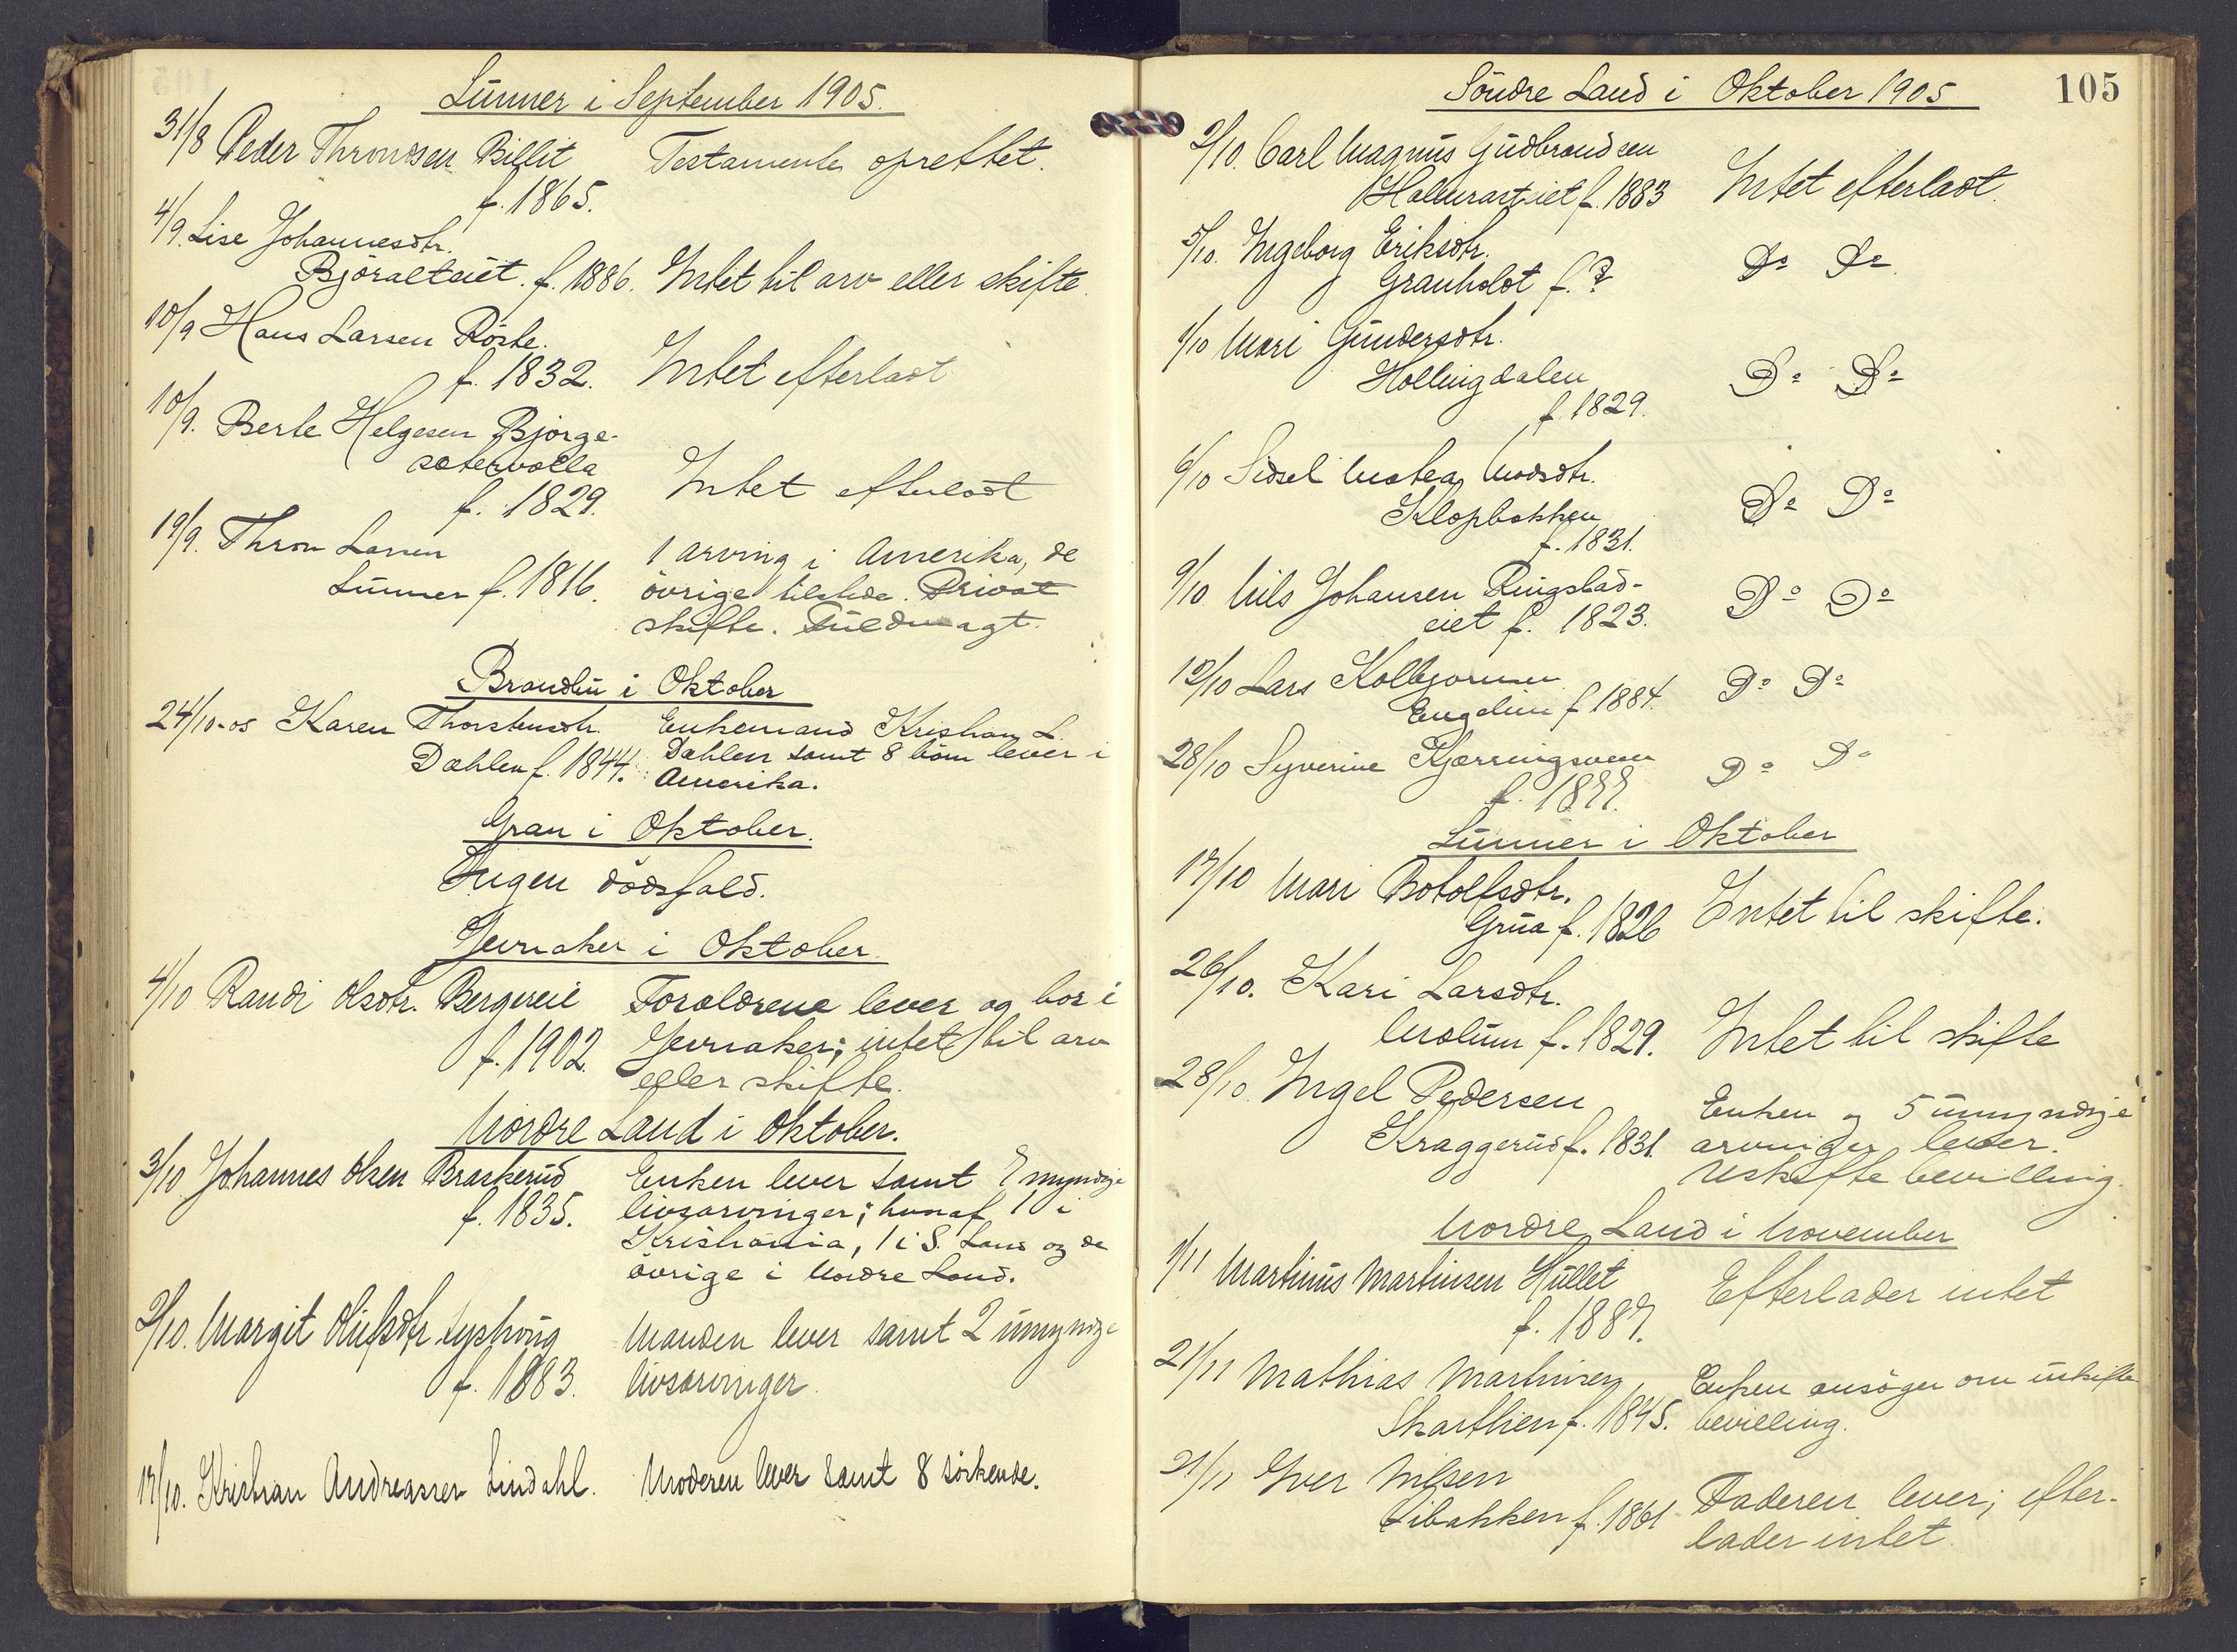 Lunner i September 1905.
31/8 Peder Throndsen Billit Testamente oprettet.
f. 1865.
4/9. Lise Johannesdtr.
Björalteiet. f. 1886. Intet til arv eller skifte.
10/9 Hans Larsen Röste.
f. 1832. Intet efterladt
10/9. Berte Helgesen Bjørge-
sætervolla
f. 1829. Intet efterladt
19/9. Thron Larsen 1 arving i Amerika, de
Lunner f. 1816. övrige tilstede. Privat
skifte. Fuldmagt.
Brandbu i Oktober
24/10-05 Karen Thorstensdtr. Enkemand Kristian L.
Dæhlen f. 1844. Dæhlen samt 8 börn lever i
Amerika.
Gran i Oktober.
Ingen dödsfald.
Jevnaker i Oktober.
4/10 Randi Olsdtr. Bergereie Forældrene lever og bor i
f. 1902. Jevnaker; intet til arv
eller skifte.
Nordre Land i Oktober.
3/10 Johannes Olsen Braskerud Enken lever samt 7 myndige
f. 1835. livsarvinger; hvoraf 1 i
Kristiania, 1 i S. Land og de
övrige i Nordre Land.
2/10. Margit Olufsdtr Lyshoug Manden lever samt 2 umyndige
f. 1883. livsarvinger.
17/10. Kristian Andreassen Lindahl. Moderen lever samt 8 söskende.
105
Söndre Land i Oktober 1905
2/10. Carl Magnus Gudbrandsen
f. 1883 Intet efterladt.
5/10. Ingeborg Eriksdtr.
Granholdt f. ? Do Do
1/10 Mari Gundersdtr.
Hollingdalen Do Do
f. 1829.
6/10 Sidsel Mathea Madsdtr.
Klopbakken Do Do
f. 1831.
9/10. Nils Johansen Ringstad-
eiet f. 1823. Do Do
12/10 Lars Kolbjørnsen
Engelien f 1884. Do Do
28/10 Syverine Kjærringsveen
f. 1877. Do Do
Lunner i Oktober
17/10 Mari Botolfsdtr.
Grua f. 1826 Intet til skifte.
26/10. Kari Larsdtr.
Molum f. 1829. Intet til skifte
28/10. Ingel Pedersen Enken og 5 umyndige
Kraggerud f. 1831. arvinger lever.
Uskiftebevilling.
Nordre Land i November
1/11 Martinus Martinsen Hullet Efterlader intet
f. 1887.
21/11 Mathias Martinsen Enken ansöger om uskifte
Skartlien f. 1845. bevilling.
21/11 Iver Nilsen Faderen lever; efter-
Libakken f. 1861 lader intet.